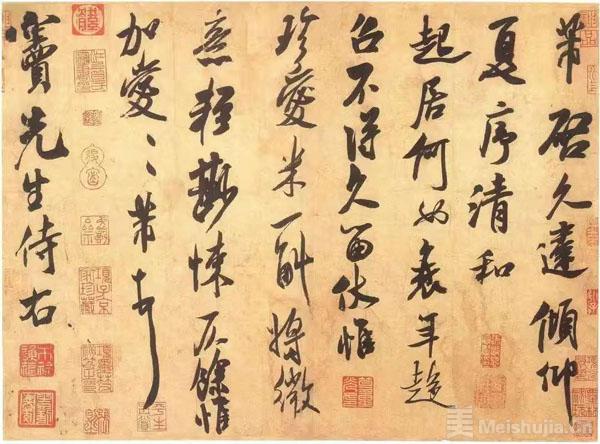 芾啓久違傾仰
夏序清和
起居何如衰年趨
召不得久留伏惟
珍愛米一斛將微
意輕尠悚仄餘惟
加愛〻芾頓首
竇先生侍右
項子京家珍藏
美 Meishujia.cn